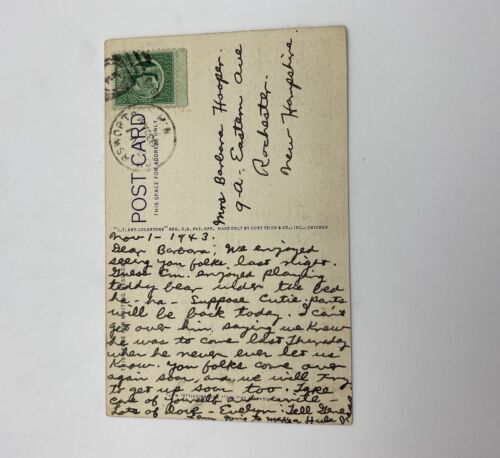 POST CARD
THIS SPACE FOR ADDRESS ONLY
Mrs Barbara Hooper.
9-a- Eastern Ave
Rochester.
New Hampshire.
"C.T. ART-COLORTONE" REG. U.S. PAT. OFF. MADE ONLY BY CURT TEICH & CO., INC., CHICAGO
Nov 1 - 1943.
Dear Barbara; We enjoyed
seeing you folks last night.
Guess Em. enjoyed playing
teddy bear under the bed
ha - ha - Suppose Cutie-parts
will be back today. I can't
get over him, saying we knew
he was to come last Thursday
when he never ever let us
know. You folks come over
again soon, and we will try
to get up soon too. Take
care of yourself and write -
Lots of love - Evelyn. Tell Gene
I am going to make a Hula